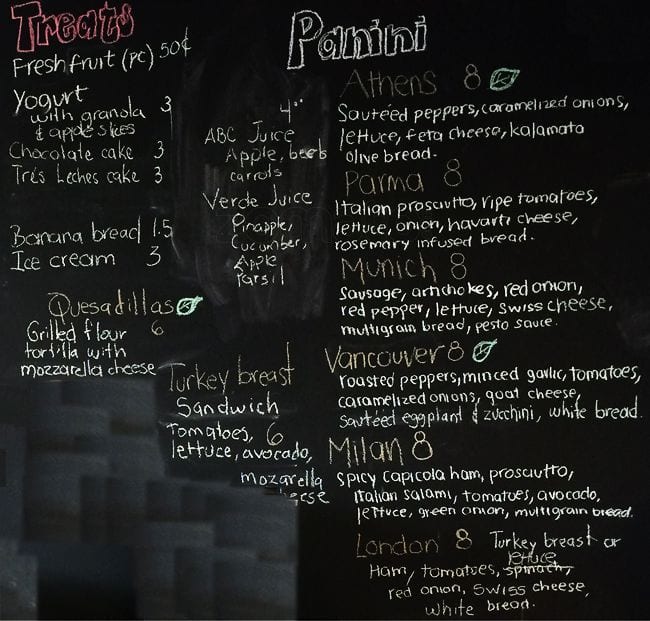 Treats
Fresh fruit (PC) 50¢
Yogurt
with granola 3
& apple slices
Chocolate cake 3
Tres Leches cake 3
Banana bread 1.5
Ice cream 3
Quesadillas
Grilled flour 6
tortilla with
mozzarella cheese
4
ABC Juice
Apple, beets
carrots
Verde Juice
Pinapple,
Cucumber,
Apple
Parsil
Turkey breast
Sandwich
Tomatoes, 6
lettuce, avocado,
mozarella
Panini
Athens 8
Sautéed peppers, caramelized onions,
lettuce, feta cheese, kalamata
olive bread.
Parma 8
Italian prosciutto, ripe tomatoes,
lettuce, onion, havarti cheese,
rosemary infused bread.
Munich 8
Sausage, artichokes, red onion,
red pepper, lettuce, swiss cheese,
multigrain bread, pesto sauce.
Vancouver 8
roasted peppers, minced garlic, tomatoes,
caramelized onions, goat cheese,
sautéed eggplant & zucchini, white bread.
Milan 8
spicy capicola ham, prosciutto,
Italian salami, tomatoes, avocado,
lettuce, green onion, multigrain bread.
London 8 Turkey breast or
lettuce
Ham, tomatoes, spinach,
red onion, Swiss cheese,
white bread.